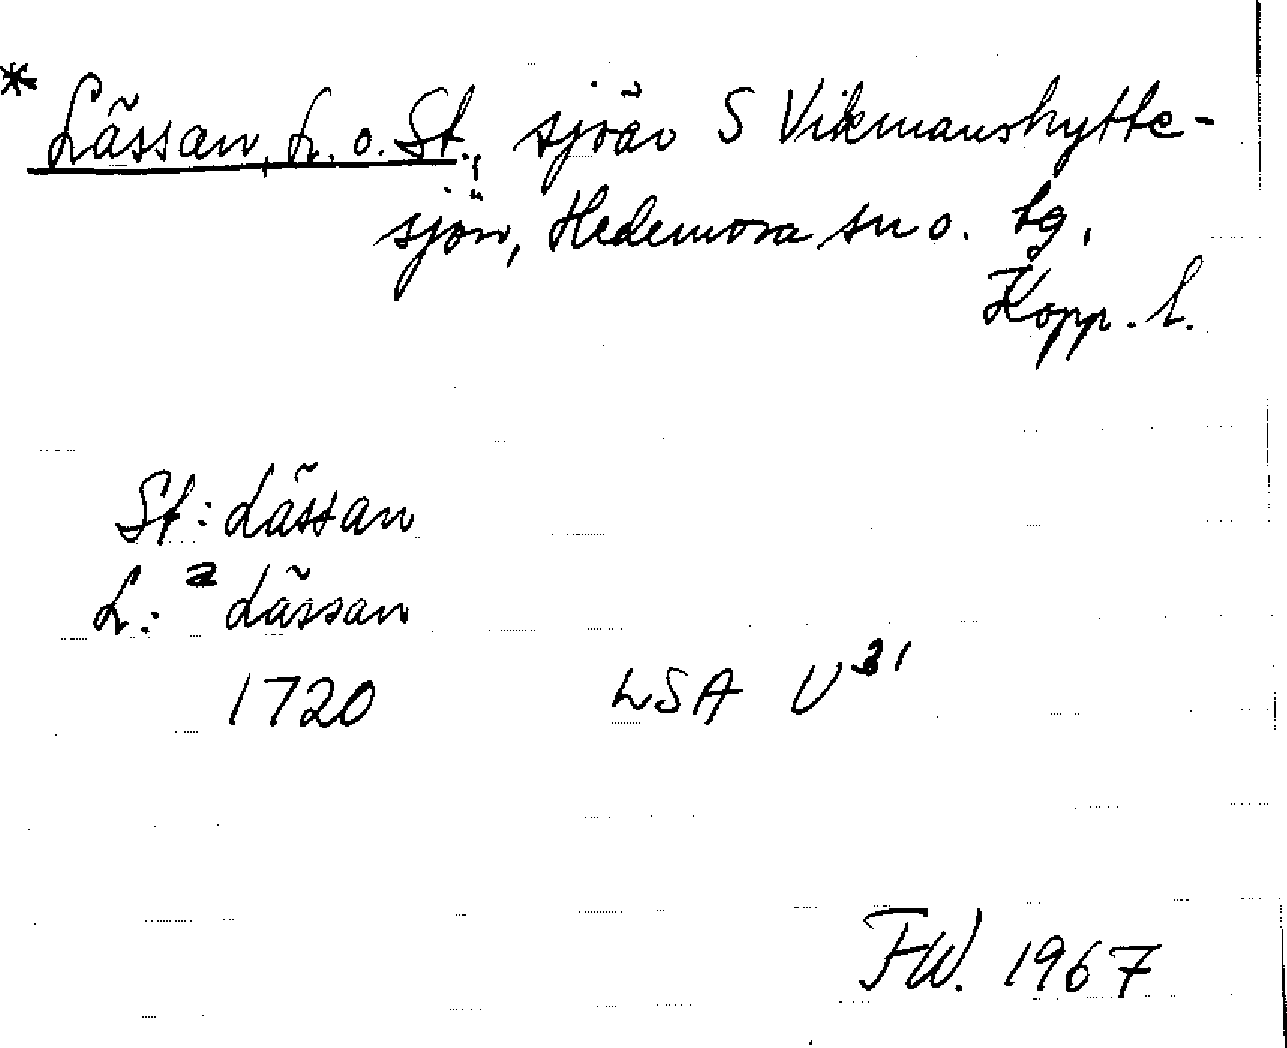 * Lässan, L. o. St., sjöar S Vikmanshytte-
sjön, Hedemora sn o. tg,
Kopp. l.
St: Lässan
L: a Lässan
1720 LSA U31
FW. 1967